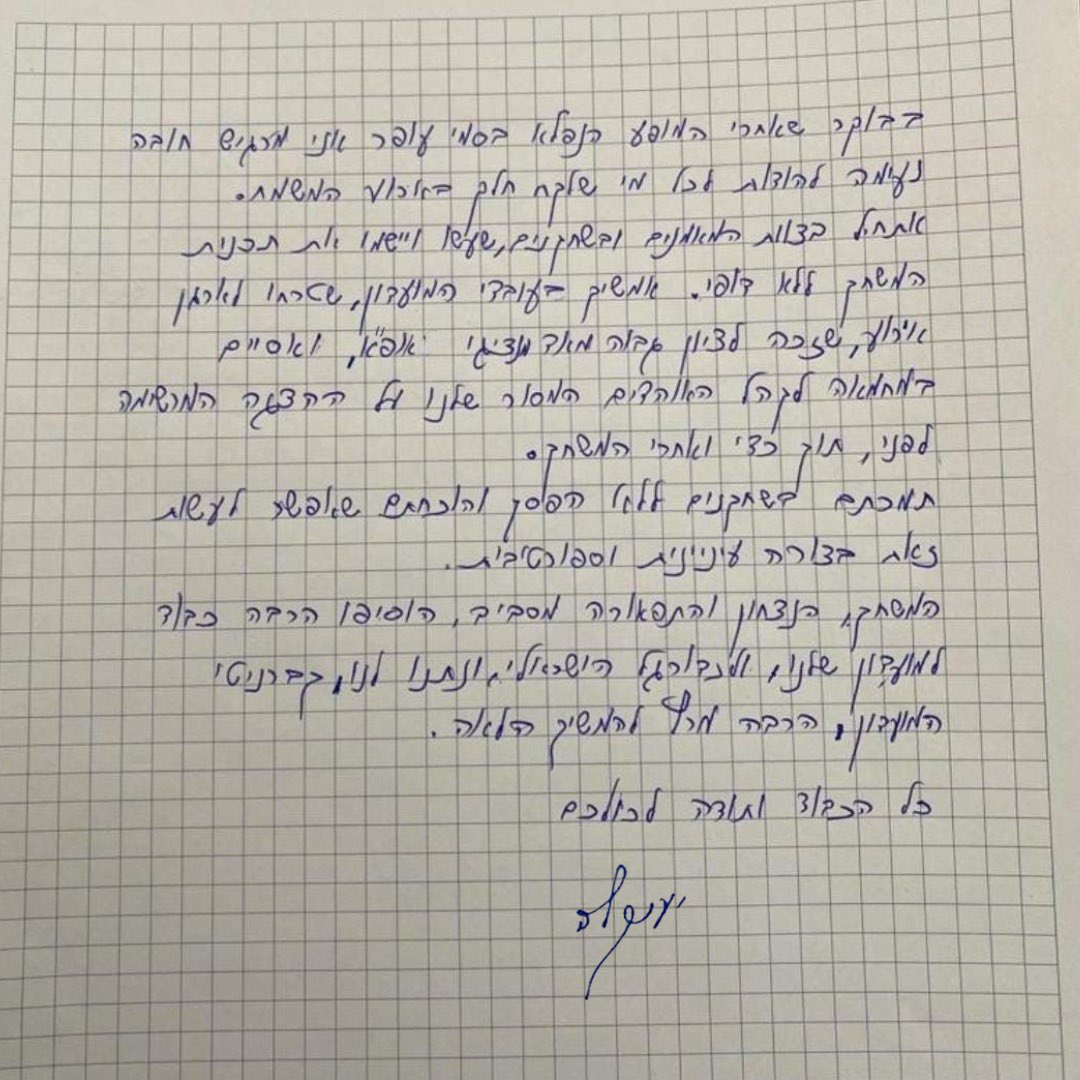 בבוקר שאחרי המופע הנפלא בסמי עופר אני מרגיש חובה
נעימה להודות לכל מי שלקח חלק באירוע המשמח.
אתחיל בצוות המאמנים ובשחקנים, שעשו ויישמו את תכנית
המשחק ללא דופי. אמשיך בעובדי המועדון, שטרחו לארגן
אירוע, שזכה לציון גבוה מאד מנציגי יאופ"א, ואסיים
במחמאה לקהל האוהדים המסור שלנו על ההצגה המרשימה
לפני, תוך כדי ואחרי המשחק.
תמכתם בשחקנים ללא הפסק והוכחתם שאפשר לעשות
זאת בצורה עניינית וספורטיבית.
המשחק, הנצחון והתפאורה מסביב, הוסיפו הרבה כבוד
למועדון שלנו, ולכדורגל הישראלי, ונתנו לנו, קברניטי
המועדון, הרבה מרץ להמשיך הלאה.
כל הכבוד ותודה לכולכם
יענקל'ה